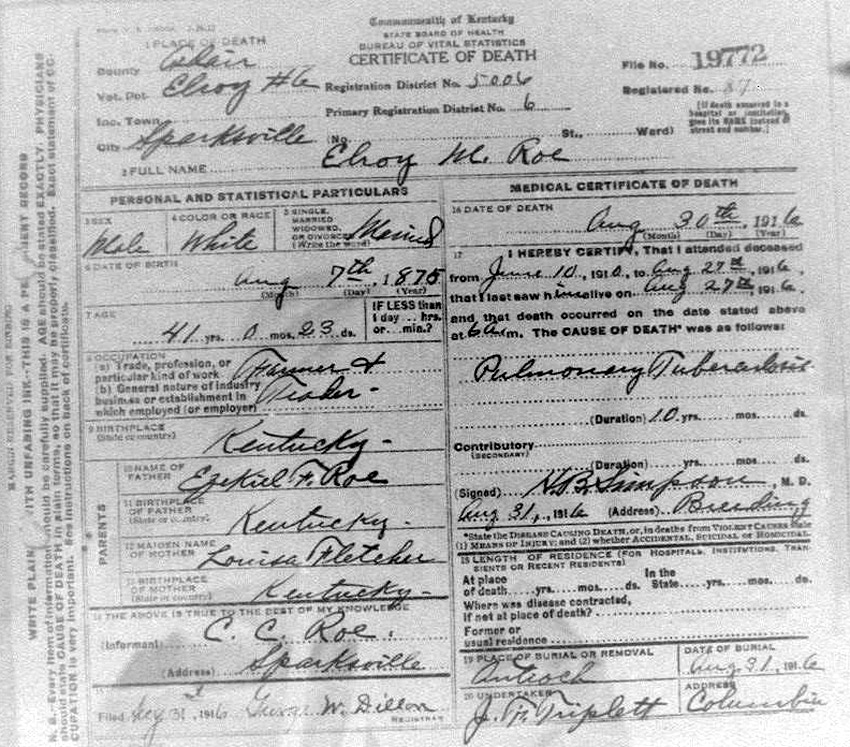 Commonwealth of Kentucky
STATE BOARD OF HEALTH
BUREAU OF VITAL STATISTICS
CERTIFICATE OF DEATH
1 PLACE OF DEATH
County Adair
Vot. Pct. Elroy #6
Inc. Town
City Sparksville
Registration District No. 5006
Primary Registration District No. 6
(No. St., Ward)
File No. 19772
Registered No. 87
[If death occurred in a
hospital or institution,
give its NAME instead of
street and number.]
2 FULL NAME Elroy M. Roe
PERSONAL AND STATISTICAL PARTICULARS
3 SEX
Male
4 COLOR OR RACE
White
5 SINGLE,
MARRIED
WIDOWED,
OR DIVORCED
(Write the word)
Married
6 DATE OF BIRTH
Aug 7th, 1875
(Month) (Day) (Year)
7 AGE
41 yrs. 0 mos. 23 ds.
IF LESS than
1 day... hrs.
or... min.?
8 OCCUPATION
(a) Trade, profession, or
particular kind of work
(b) General nature of industry
business or establishment in
which employed (or employer)
Farmer &
Trader -
9 BIRTHPLACE
(State or country)
Kentucky -
PARENTS
10 NAME OF
FATHER
Ezekiel F. Roe
11 BIRTHPLACE
OF FATHER
(State or country)
Kentucky -
12 MAIDEN NAME
OF MOTHER
Louisa Fletcher
13 BIRTHPLACE
OF MOTHER
(State or country)
Kentucky -
14 THE ABOVE IS TRUE TO THE BEST OF MY KNOWLEDGE
(Informant) C. C. Roe.
(Address) Sparksville
Filed 31st, 1916 George W. Dillon
REGISTRAR
MEDICAL CERTIFICATE OF DEATH
16 DATE OF DEATH
Aug 30th, 1916
(Month) (Day) (Year)
17 I HEREBY CERTIFY, That I attended deceased
from June 10, 1910, to Aug 27th, 1916,
that I last saw him alive on Aug 27th, 1916,
and that death occurred on the date stated above
at 6 a m. The CAUSE OF DEATH* was as follows:
Pulmonary Tuberculosis
(Duration) 10 yrs. mos. ds.
Contributory
(SECONDARY)
(Duration) yrs. mos. ds.
(Signed) H.B. Simpson, M. D.
Aug 31, 1916 (Address) Breeding
*State the DISEASE CAUSING DEATH, or, in deaths from VIOLENT CAUSES state
(1) MEANS OF INJURY; and (2) whether ACCIDENTAL, SUICIDAL or HOMICIDAL.
18 LENGTH OF RESIDENCE (FOR HOSPITALS, INSTITUTIONS, TRAN-
SIENTS OR RECENT RESIDENTS)
At place
of death yrs. mos. ds.
In the
State yrs. mos. ds.
Where was disease contracted,
if not at place of death?
Former or
usual residence
19 PLACE OF BURIAL OR REMOVAL
Antioch
DATE OF BURIAL
Aug 31, 1916
20 UNDERTAKER
J. F. Triplett
ADDRESS
Columbia
MARGIN RESERVED FOR BINDING
WRITE PLAIN WITH UNFADING INK—THIS IS A PERMANENT RECORD
N. B.—Every item of information should be carefully supplied. AGE should be stated EXACTLY. PHYSICIANS
should state CAUSE OF DEATH in plain terms, so that it may be properly classified. Exact statement of OC-
CUPATION is very important. See instructions on back of certificate.